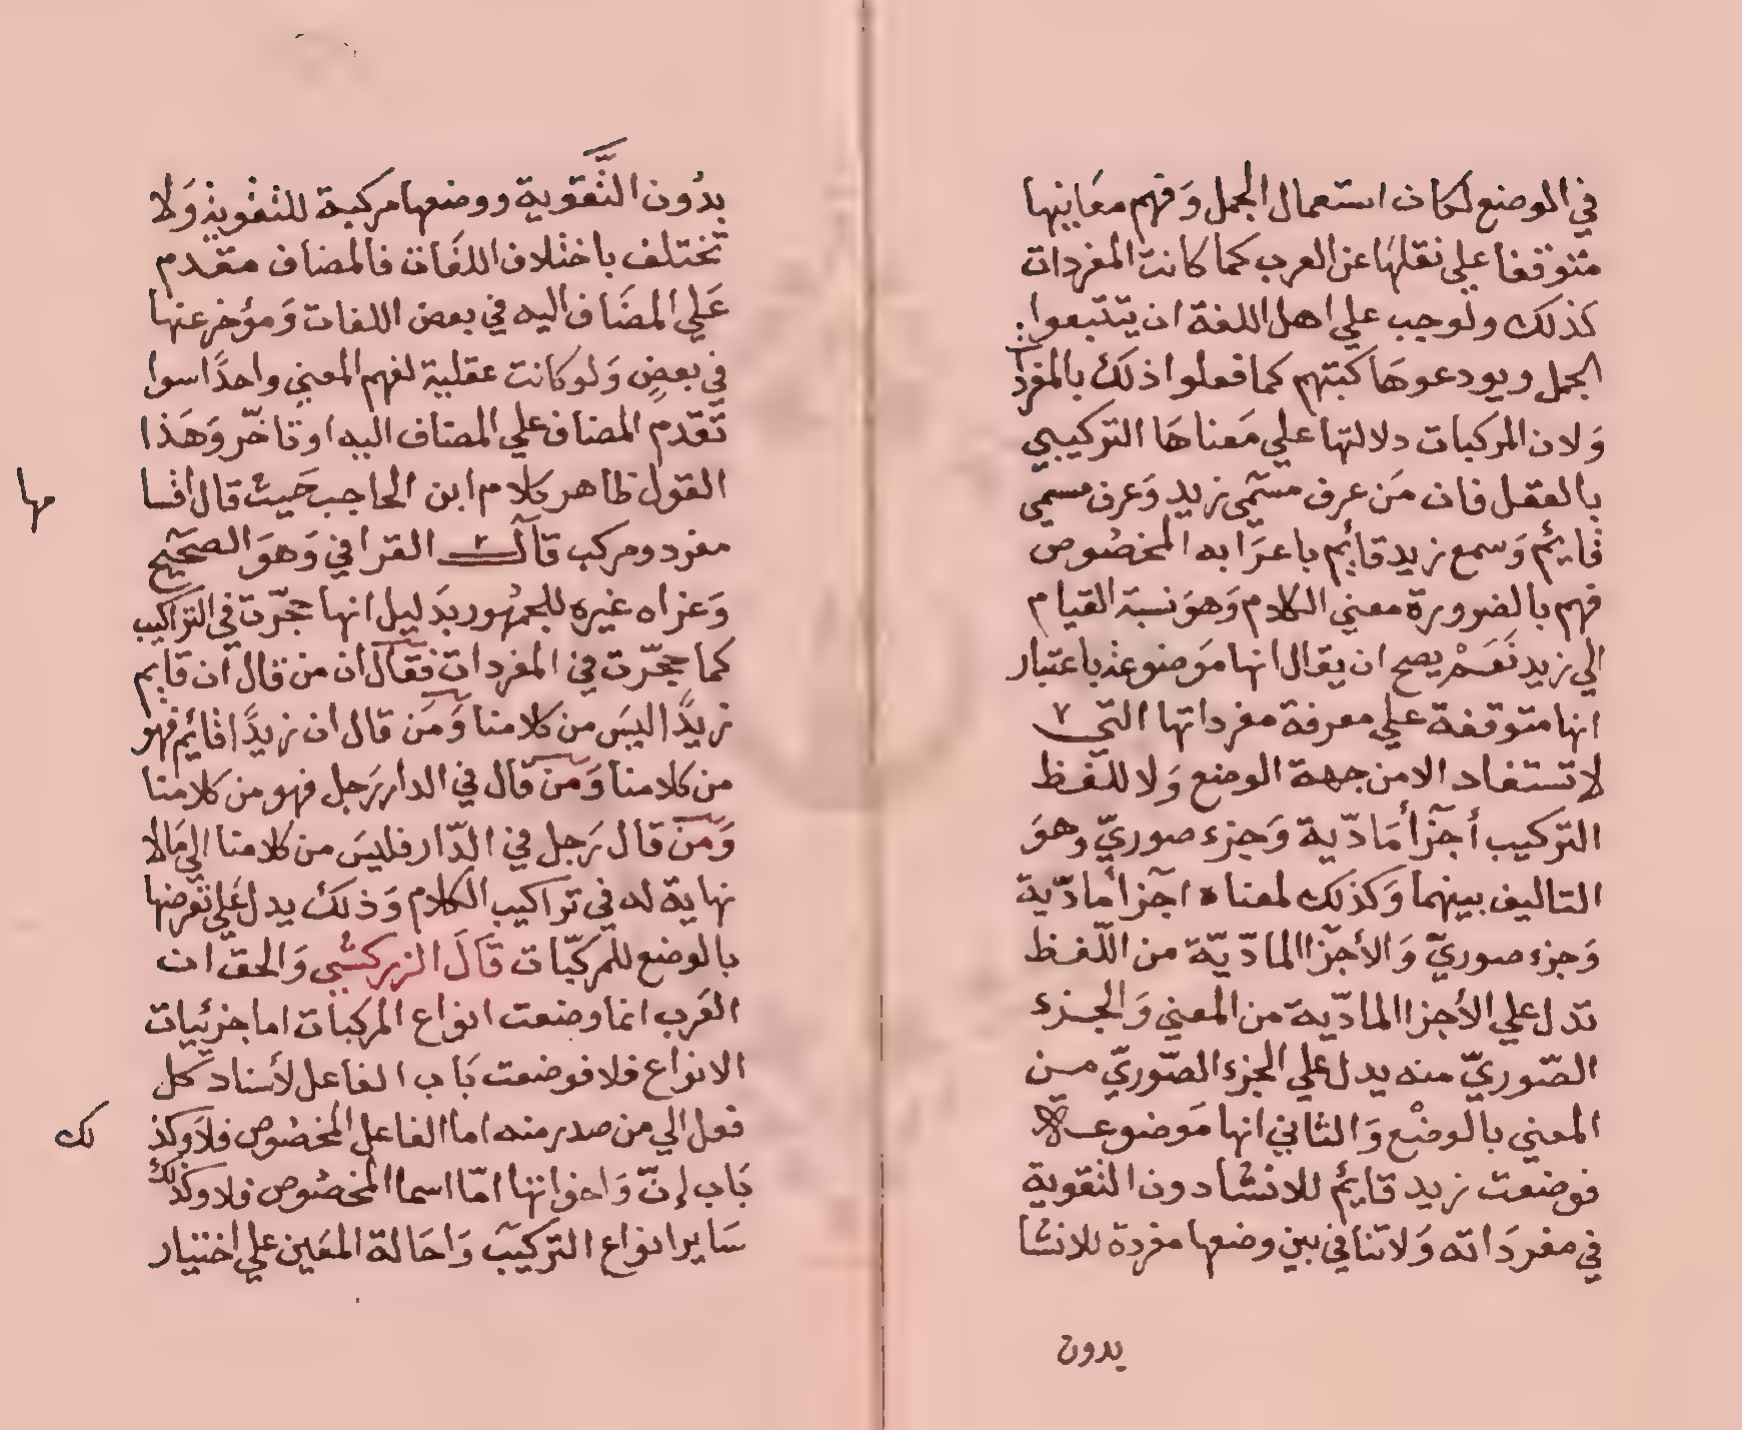 في الوضع لكان استعمال الجمل وَفهم معَانيها
متوقفا علي نقلهَا عن العرب كما كانت المفردات
كذلك ولوجب علي اهل اللغة ان يتتبعوا
الجمل ويودعوهَا كتبهم كما فعلوا ذلكَ بالمفردات
وَلان المركبات دلالتها علي مَعناهَا التركيبي
بالعقل فان مَن عرف مسمَّي زيد وَعرف مسمي
قايئم وَسمع زيد قائم باعرَابه المخصُوص
فهم بالضرورة معني الكلام وَهوَ نسبة القيام
الي زيد نَعَمْ يصح ان يقال انها مَوضوعة باعتبار
انها متوقفة علي معرفة مفرداتها التي
لا تستفاد الا من جهة الوضع وَلا للفظ
التركيب أجزآ مَادّية وَجزء صوريّ وهوَ
التاليف بينهما وَكذلك لمعناه اجزآ مادّية
وَجزء صوريّ وَالأجزآ الماديّة من اللّفظ
تدل علي الأجزا المادّية من المعني وَالجزء
الصّوريّ منه يدل علي الجزء الصّوريّ من
المعني بالوضْع وَالثاني انها مَوضوعة
فوضعت زيد قايئم للانشا دون التقوية
في مفردَاته وَلا تنافي بين وضعها مفردة للانشا
بدون
بدُون التَّقوية ووضعها مركبة للتقوية وَلا
تختلف باختلاف اللغَات فالمضاف مقدم
عَلي المضَاف اليه في بعض اللغات وَمؤخر عنها
في بعضٍ وَلو كانت عقلية لفهم المعني واحدًا سوا
تَقدّم المضاف علي المضاف اليه او تاخّر وَهَذا
القول ظاهر كلام ابن الحاجب حَيثُ قال اقسا
مها
مفرد ومركب قالَ القرافي وَهوَ الصحَيح
وَعزاه غيره للجمهُور بدَليل انها حجّرت في التراكيب
كما حجّرت في المفردات فقال ان من قال ان قايم
زيدًا ليسَ من كلامنا وَمَن قال ان زيدًا قائم فهو
من كلامنا وَمن قال في الدار رَجل فهو من كلامنا
وَمَن قال رَجل في الدّار فليسَ من كلامنا الي مَالا
نهاية له في تراكيب الكلام وَذلكَ يدل عَلي تعرضها
بالوضع للمركبّات قالَ الزركشي وَالحقّ ان
العَرب انما وضعت انواع المركبات اما جزئيات
الانواع فلا فوضعت بَاب الفاعل لأسناد كل
فعل الي من صدر منه اما الفاعل المخصُوص فلا وَكذ
لك
بَاب إنّ وَاخواتها امّا اسما المخصُوص فلا وَكذلك
سَاير انواع التركيبَ وَاحَالة المعَين علي اختيار